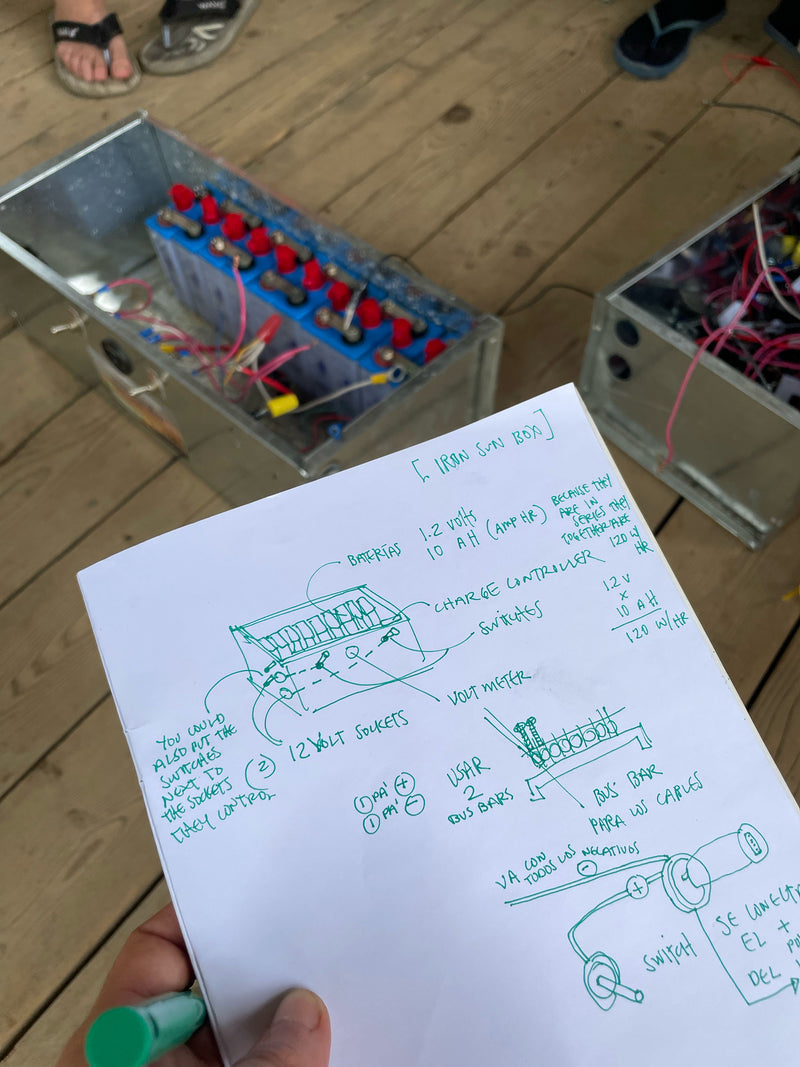 [ IRON SUN BOX ]
BATERÍAS
1.2 VOLTS
10 AH (AMP HR)
BECAUSE THEY
ARE IN
SERIES THEY
TOGETHER ARE
120 W/
HR
CHARGE CONTROLLER
SWITCHES
12 V
X
10 AH
120 W/HR
VOLT METER
YOU COULD
ALSO PUT THE
SWITCHES
NEXT TO
THE SOCKETS
THEY CONTROL
(2) 12 VOLT SOCKETS
1 PA' +
1 PA' -
USAR
2
BUS BARS
BUS BAR
PARA LOS CABLES
VA CON
TODOS LOS NEGATIVOS
-
+
SWITCH
SE CONECTA
EL +
DEL